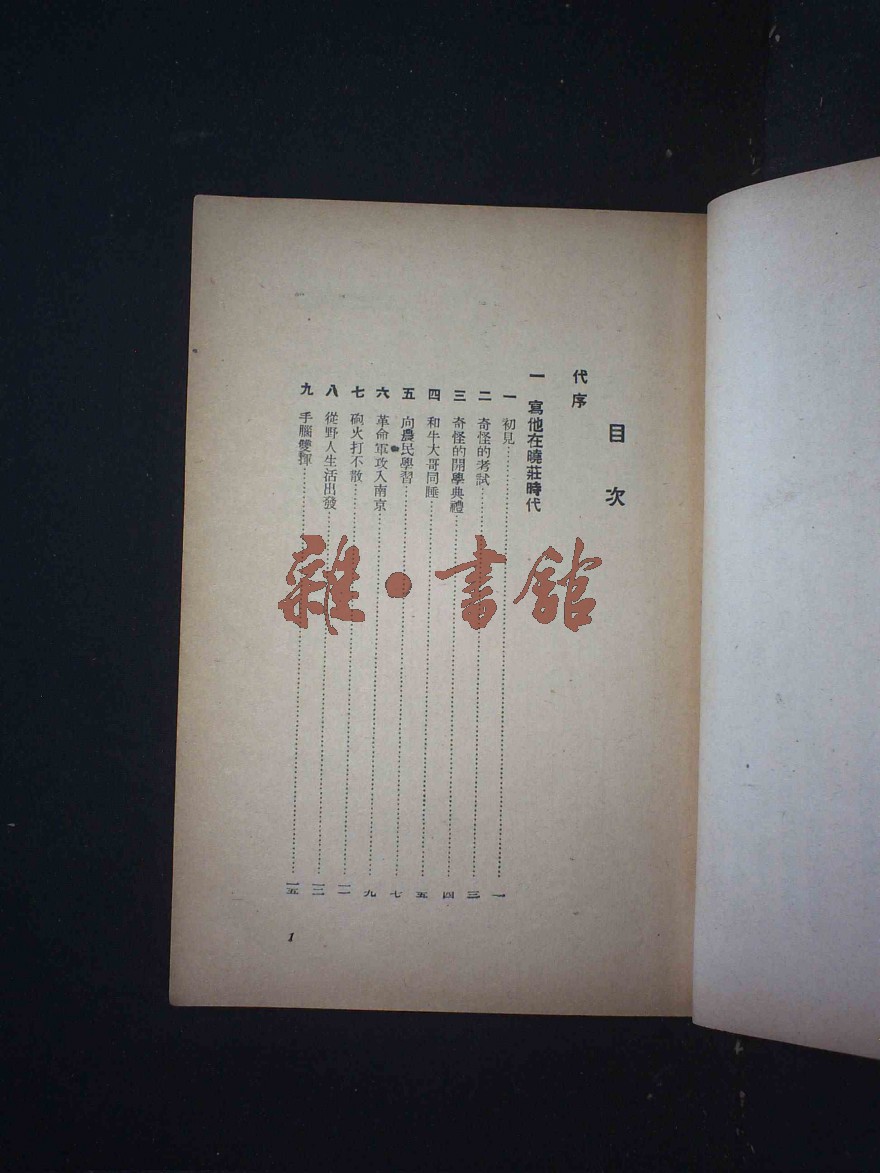 目次
代序
一 寫他在曉莊時代
一 初見…………一
二 奇怪的考試…………三
三 奇怪的開學典禮…………四
四 和牛大哥同睡…………五
五 向農民學習…………七
六 革命軍攻入南京…………九
七 砲火打不散…………一一
八 從野人生活出發…………一三
九 手腦雙揮…………一五
1
雜·書館